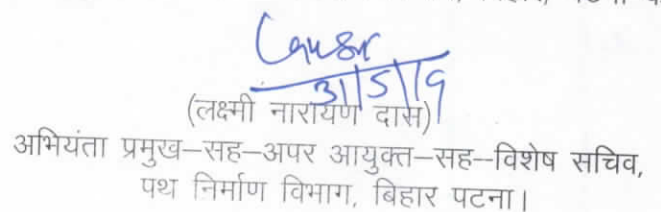 पटना
31/5/19
(लक्ष्मी नारायण दास)
अभियंता प्रमुख–सह–अपर आयुक्त–सह--विशेष सचिव,
पथ निर्माण विभाग, बिहार पटना।